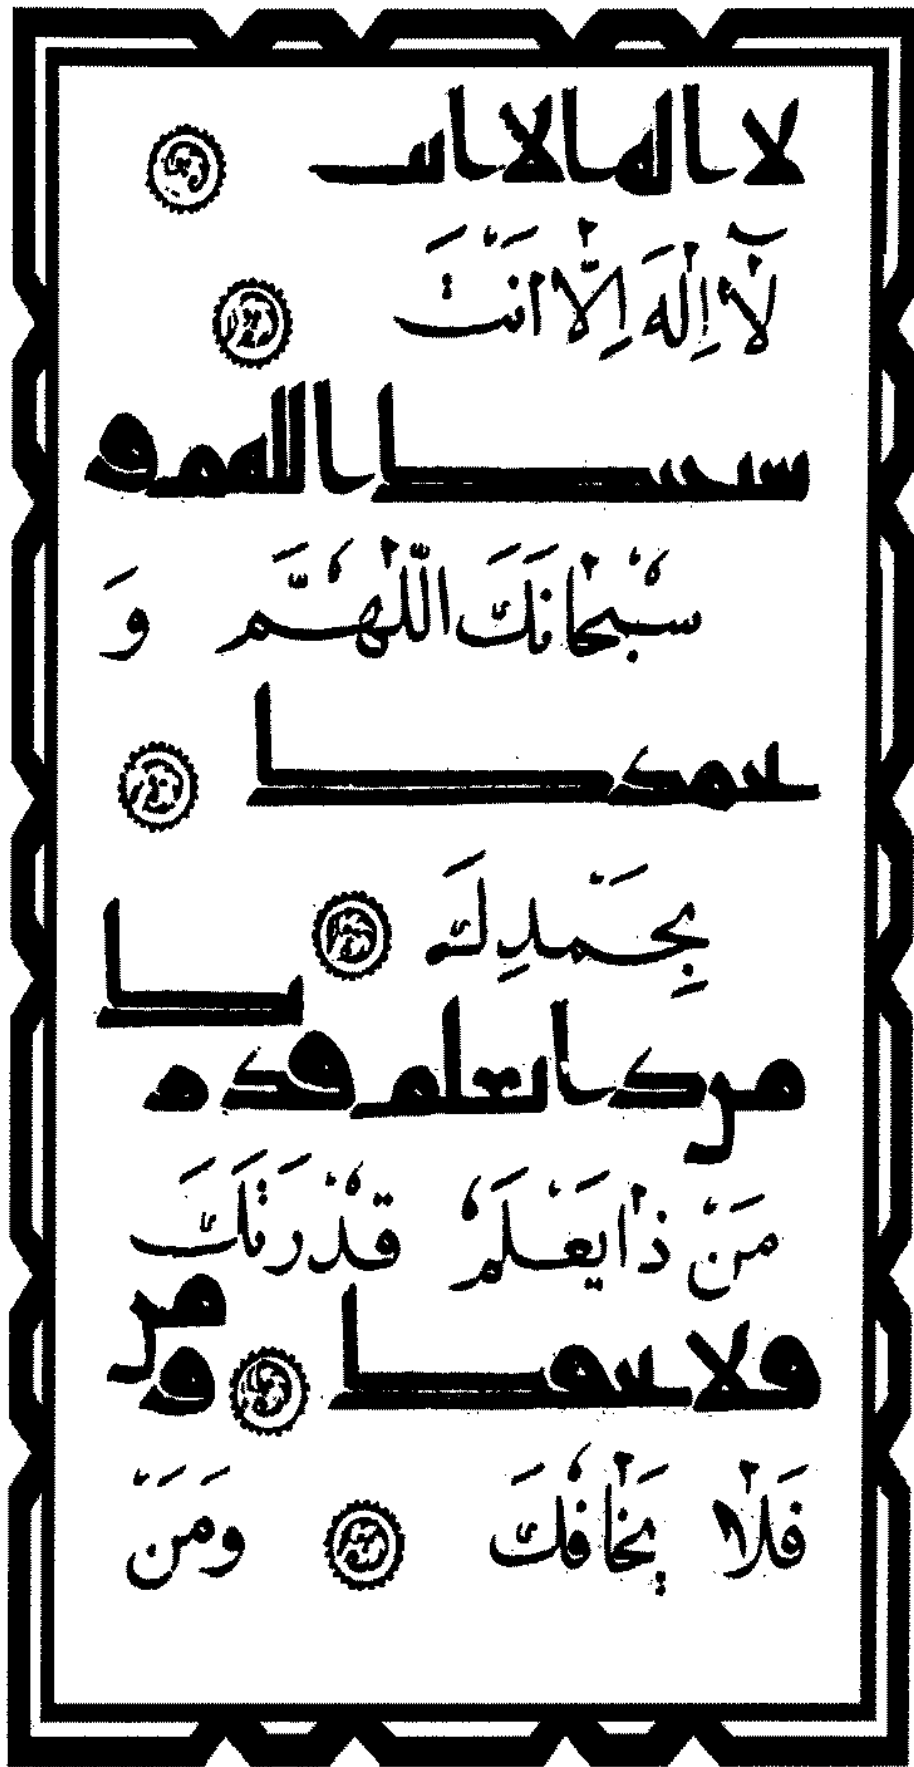 لا اله الا انت
لَآ اِلٰهَ اِلَّا اَنْتَ
سبحنك اللهم و
سُبْحَانَكَ اللّٰهُمَّ وَ
بحمدك
بِحَمْدِكَ
من ذا يعلم قدرتك
مَنْ ذَا يَعْلَمُ قُدْرَتَكَ
فلا يخفك و من
فَلَا يَخَافُكَ وَمَنْ